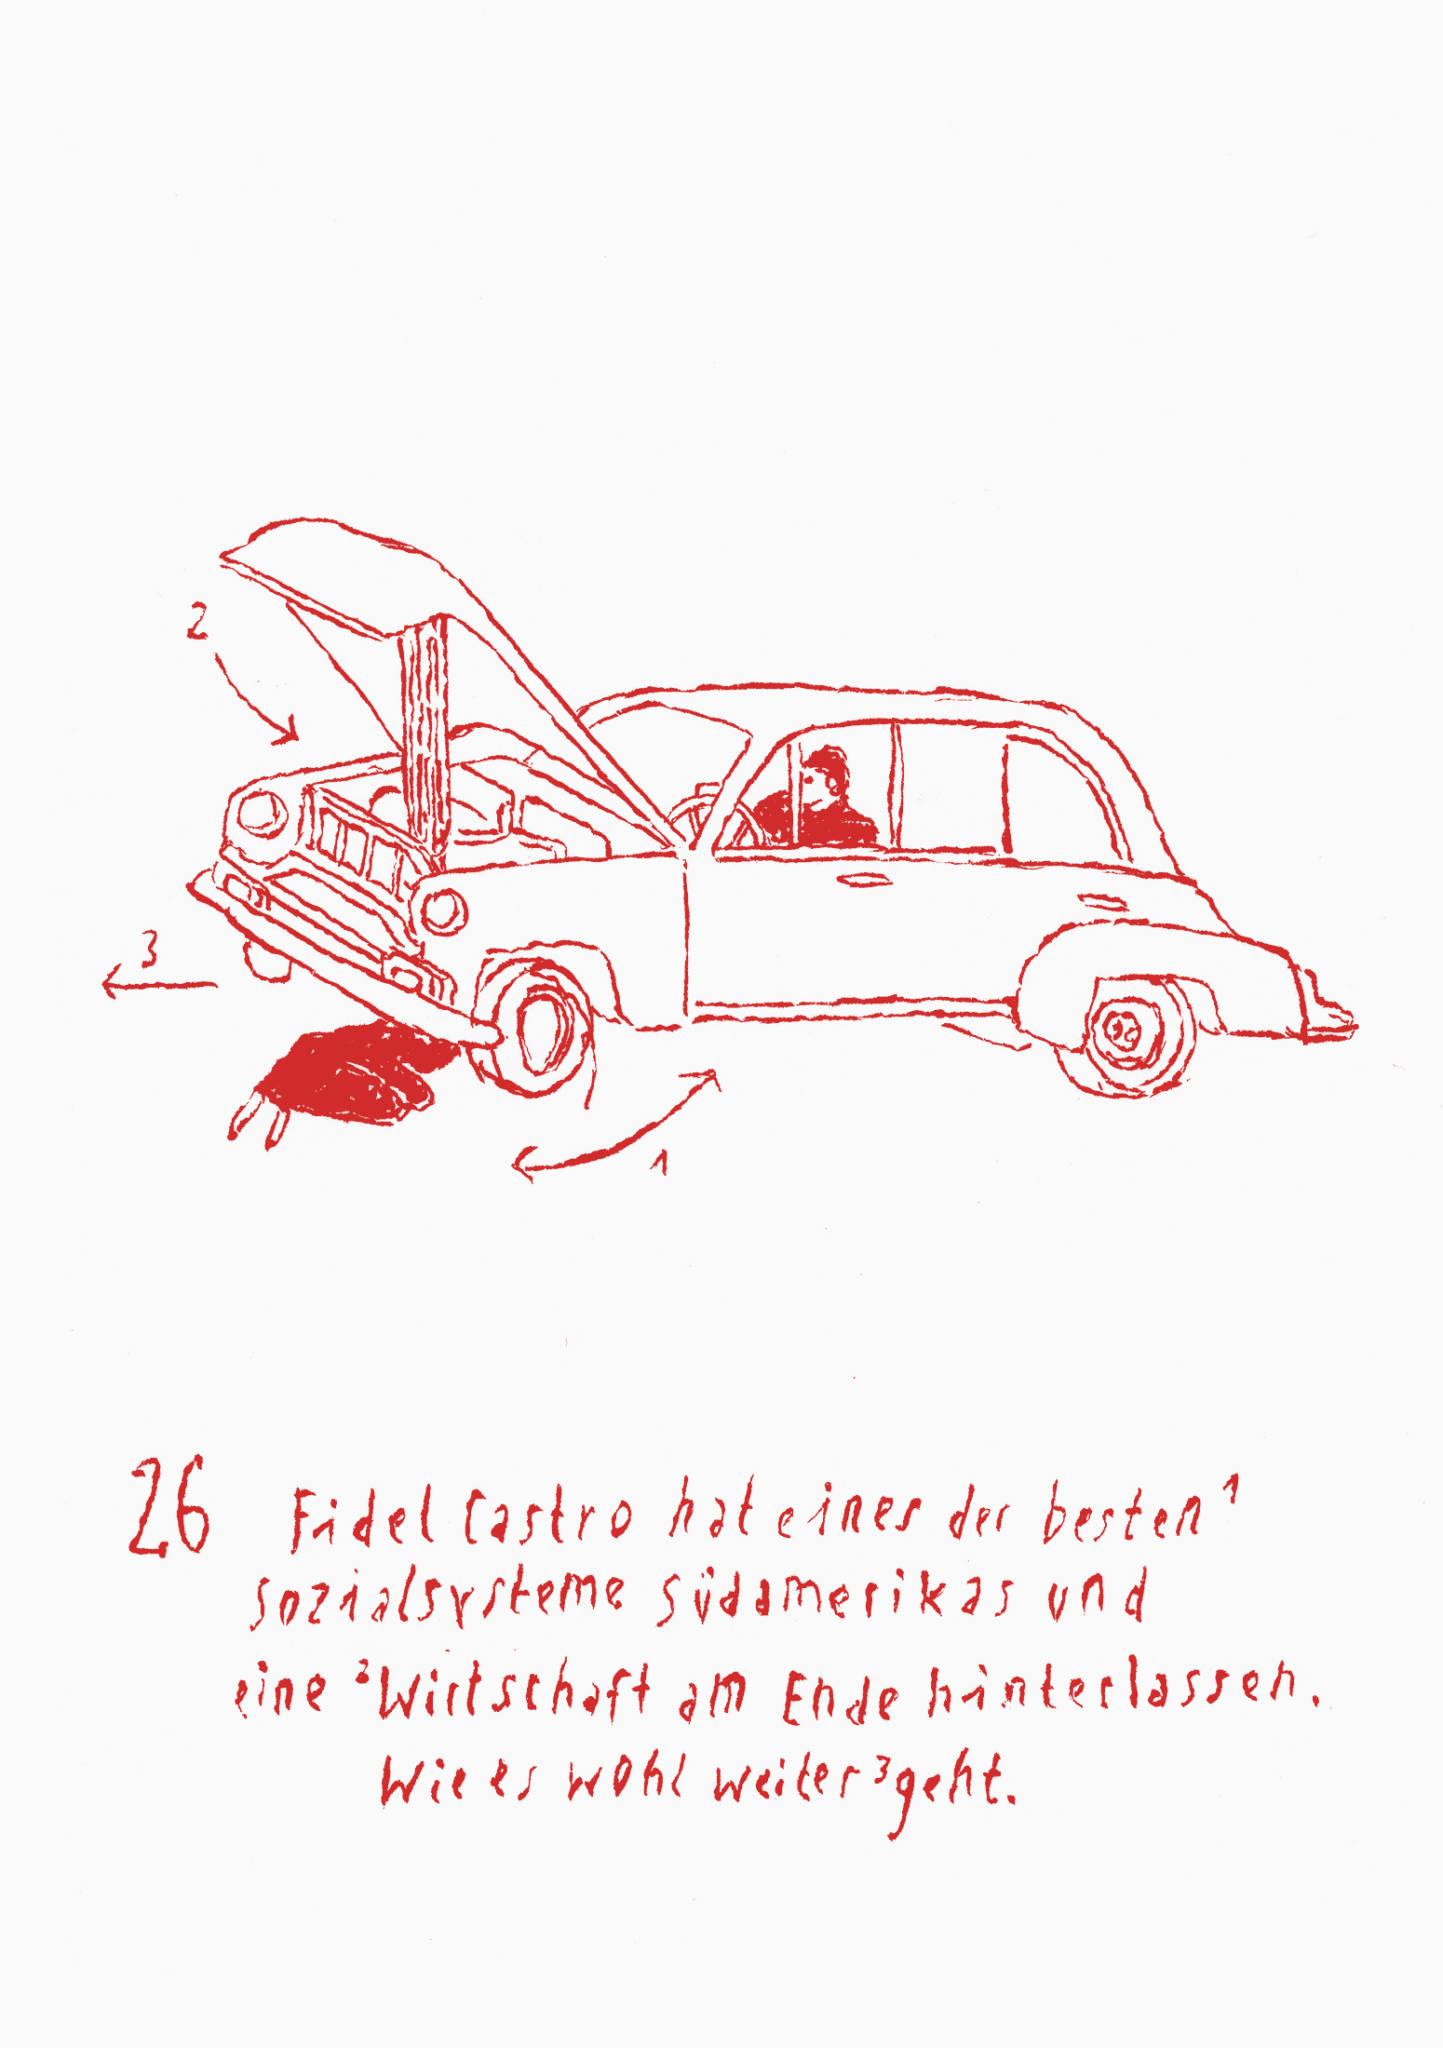 2
3
1
26 Fidel Castro hat eines der besten ¹
sozialsysteme südamerikas und
eine ²Wirtschaft am Ende hinterlassen.
Wie es wohl weiter ³geht.